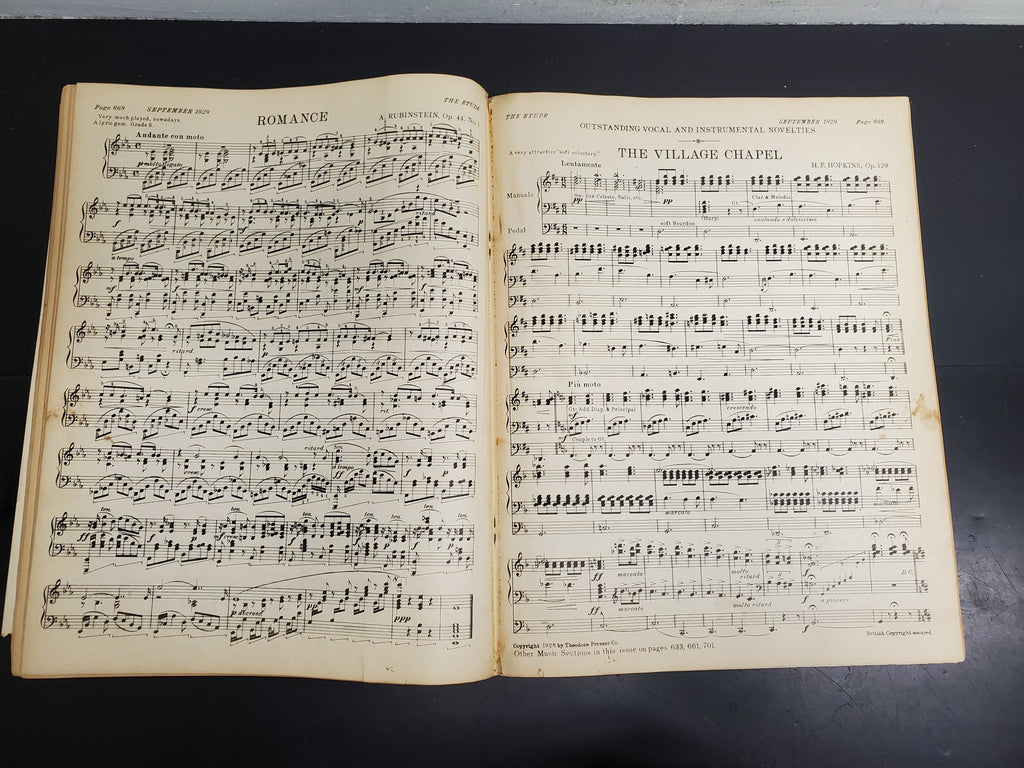 Page 668 SEPTEMBER 1929 THE ETUDE
Very much played, nowadays.
A lyric gem. Grade 5.
ROMANCE
A. RUBINSTEIN, Op. 44, No. 1
Andante con moto
p molto legato
f
ritard
a tempo
f
p
ritard.
p
f cresc.
rit.
ritard ten.
f cresc.
a tempo
ff
p
ten. ten. ten. ten. ten.
ff
p
p decresc.
pp
ppp
THE ETUDE SEPTEMBER 1929 Page 669
OUTSTANDING VOCAL AND INSTRUMENTAL NOVELTIES
A very attractive "soft voluntary."
THE VILLAGE CHAPEL
H. P. HOPKINS, Op. 129
Lentamente
Manuals
pp
Sw. Vox Celeste, Salic, etc.
pp
(Harp)
Gt.
Clar. & Melodia
cantando e dolcissimo
Pedal
soft Bourdon
Fine
Più moto
f
Gt: Add Diap. & Principal
crescendo
Couple to Gt.
marcato
marcato
ff
marcato
molto ritard
f
D.C.
a piacere
ff
marcato
molto ritard
f
British Copyright secured
Copyright 1928 by Theodore Presser Co.
Other Music Sections in this issue on pages 633, 661, 701.